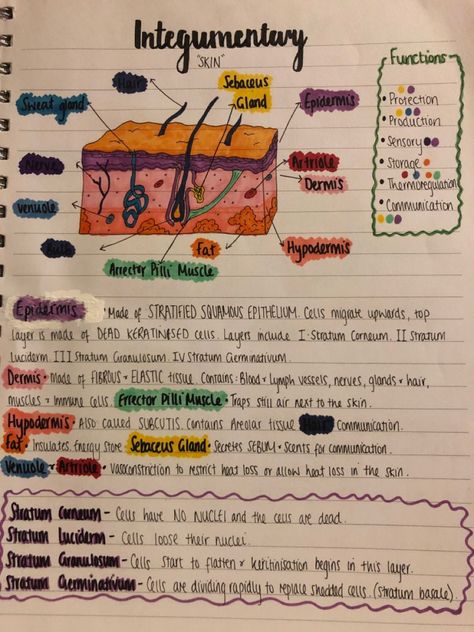 Integumentary
"SKIN"
Hair
Sebaceus
Gland
Sweat gland
Epidermis
Nerve
Artriole
Dermis
Venuole
Fat
Hypodermis
Arrector Pilli Muscle
Functions
• Protection
• Production
• Sensory
• Storage
• Thermoregulation
• Communication
Epidermis • Made of STRATIFIED SQUAMOUS EPITHELIUM. Cells migrate upwards, top
layer is made of DEAD KERATINISED cells. Layers include I Stratum Corneum. II Stratum
Luciderm III Stratum Granulosum. IV Stratum Germinativum.
Dermis • Made of FIBROUS & ELASTIC tissue. Contains: Blood & lymph vessels, nerves, glands & hair,
muscles & Immune cells. Errector Pilli Muscle • Traps still air next to the skin.
Hypodermis • Also called SUBCUTIS. Contains Areolar tissue Hair Communication.
Fat • Insulates. Energy store Sebaceus Gland • Secretes SEBUM & Scents for communication.
Venuole & Artriole • Vasoconstriction to restrict heat loss or allow heat loss in the skin.
Stratum Corneum - Cells have NO NUCLEI and the cells are dead.
Stratum Luciderm - Cells loose their nuclei.
Stratum Granulosum - Cells start to flatten & keritinisation begins in this layer.
Stratum Germinativum - Cells are dividing rapidly to replace shedded cells. (stratum basale)